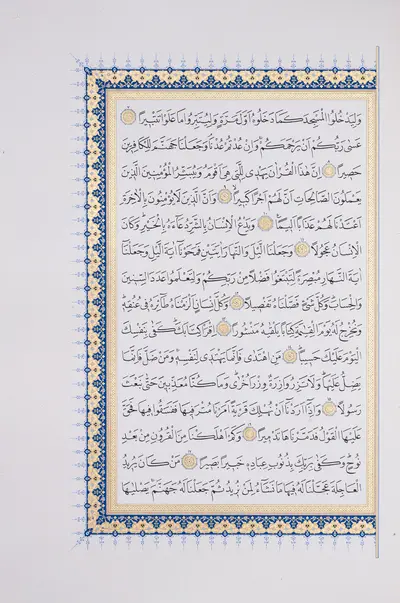 وَلِيَدْخُلُوا الْمَسْجِدَ كَمَا دَخَلُوهُ أَوَّلَ مَرَّةٍ وَلِيُتَبِّرُوا مَا عَلَوْا تَتْبِيرًا
عَسَى رَبُّكُمْ أَنْ يَرْحَمَكُمْ وَإِنْ عُدْتُمْ عُدْنَا وَجَعَلْنَا جَهَنَّمَ لِلْكَافِرِينَ
حَصِيرًا إِنَّ هَذَا الْقُرْآنَ يَهْدِي لِلَّتِي هِيَ أَقْوَمُ وَيُبَشِّرُ الْمُؤْمِنِينَ الَّذِينَ
يَعْمَلُونَ الصَّالِحَاتِ أَنَّ لَهُمْ أَجْرًا كَبِيرًا وَأَنَّ الَّذِينَ لَا يُؤْمِنُونَ بِالْآخِرَةِ
أَعْتَدْنَا لَهُمْ عَذَابًا أَلِيمًا وَيَدْعُ الْإِنْسَانُ بِالشَّرِّ دُعَاءَهُ بِالْخَيْرِ وَكَانَ
الْإِنْسَانُ عَجُولًا وَجَعَلْنَا اللَّيْلَ وَالنَّهَارَ آيَتَيْنِ فَمَحَوْنَا آيَةَ اللَّيْلِ وَجَعَلْنَا
آيَةَ النَّهَارِ مُبْصِرَةً لِتَبْتَغُوا فَضْلًا مِنْ رَبِّكُمْ وَلِتَعْلَمُوا عَدَدَ السِّنِينَ
وَالْحِسَابَ وَكُلَّ شَيْءٍ فَصَّلْنَاهُ تَفْصِيلًا وَكُلَّ إِنْسَانٍ أَلْزَمْنَاهُ طَائِرَهُ فِي عُنُقِهِ
وَنُخْرِجُ لَهُ يَوْمَ الْقِيَامَةِ كِتَابًا يَلْقَاهُ مَنْشُورًا اقْرَأْ كِتَابَكَ كَفَى بِنَفْسِكَ
الْيَوْمَ عَلَيْكَ حَسِيبًا مَنِ اهْتَدَى فَإِنَّمَا يَهْتَدِي لِنَفْسِهِ وَمَنْ ضَلَّ فَإِنَّمَا
يَضِلُّ عَلَيْهَا وَلَا تَزِرُ وَازِرَةٌ وِزْرَ أُخْرَى وَمَا كُنَّا مُعَذِّبِينَ حَتَّى نَبْعَثَ
رَسُولًا وَإِذَا أَرَدْنَا أَنْ نُهْلِكَ قَرْيَةً أَمَرْنَا مُتْرَفِيهَا فَفَسَقُوا فِيهَا فَحَقَّ
عَلَيْهَا الْقَوْلُ فَدَمَّرْنَاهَا تَدْمِيرًا وَكَمْ أَهْلَكْنَا مِنَ الْقُرُونِ مِنْ بَعْدِ
نُوحٍ وَكَفَى بِرَبِّكَ بِذُنُوبِ عِبَادِهِ خَبِيرًا بَصِيرًا مَنْ كَانَ يُرِيدُ
الْعَاجِلَةَ عَجَّلْنَا لَهُ فِيهَا مَا نَشَاءُ لِمَنْ نُرِيدُ ثُمَّ جَعَلْنَا لَهُ جَهَنَّمَ يَصْلَاهَا